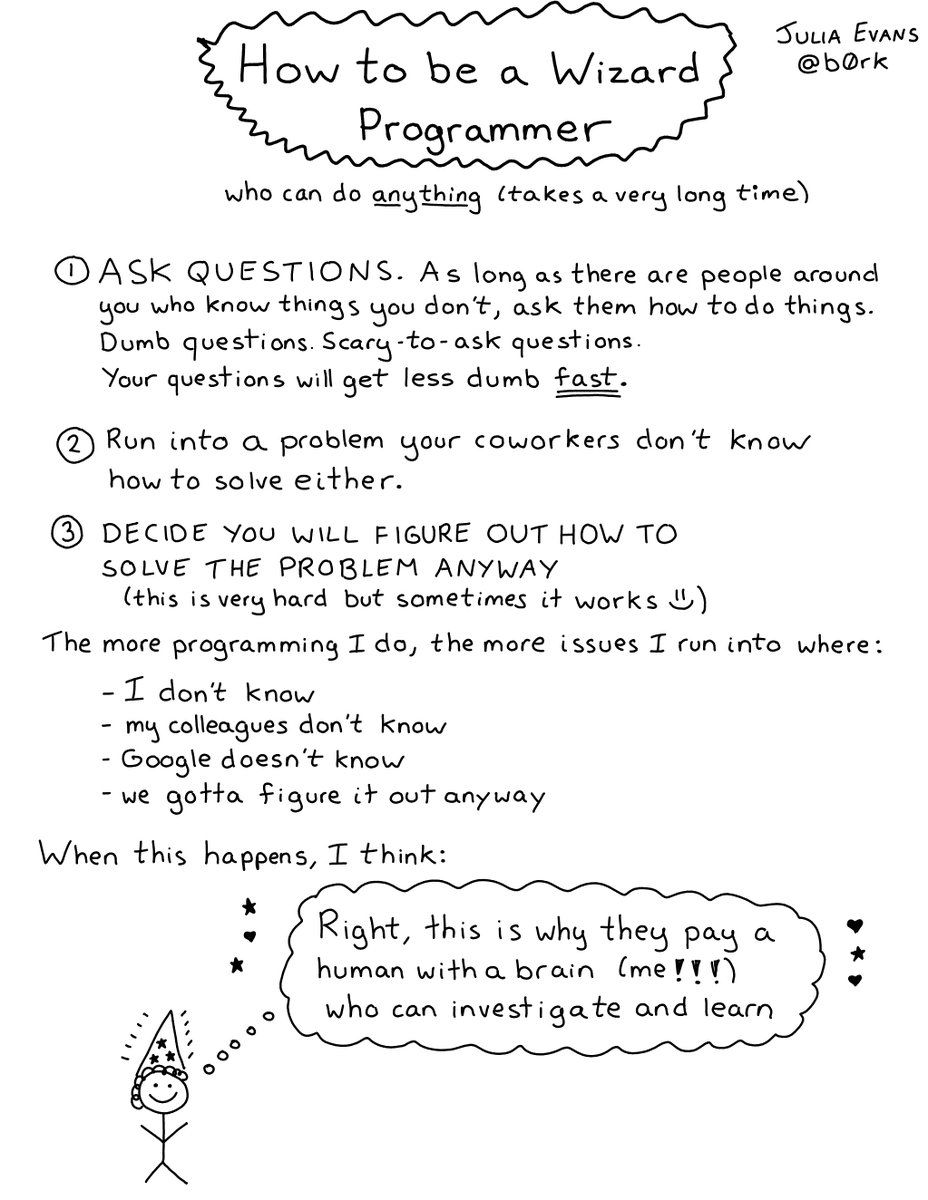 How to be a Wizard
Programmer
JULIA EVANS
@b0rk
who can do anything (takes a very long time)
① ASK QUESTIONS. As long as there are people around
you who know things you don't, ask them how to do things.
Dumb questions. Scary-to-ask questions.
Your questions will get less dumb fast.
② Run into a problem your coworkers don't know
how to solve either.
③ DECIDE YOU WILL FIGURE OUT HOW TO
SOLVE THE PROBLEM ANYWAY
(this is very hard but sometimes it works :))
The more programming I do, the more issues I run into where:
- I don't know
- my colleagues don't know
- Google doesn't know
- we gotta figure it out anyway
When this happens, I think:
Right, this is why they pay a
human with a brain (me!!!)
who can investigate and learn